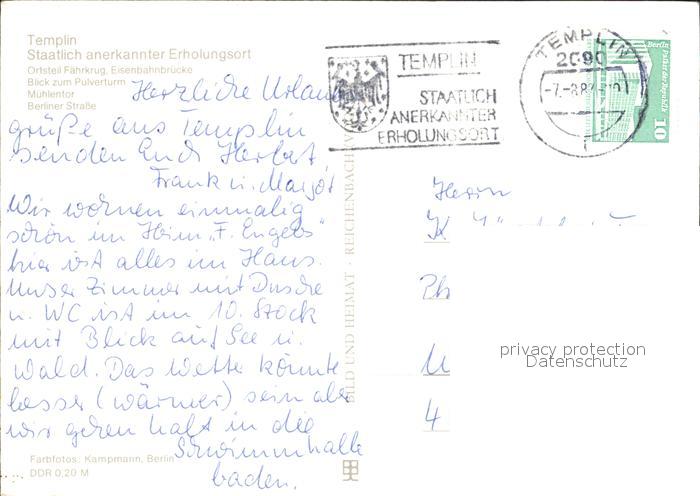 Templin
Staatlich anerkannter Erholungsort
Ortsteil Fährkrug, Eisenbahnbrücke
Blick zum Pulverturm
Mühlentor
Berliner Straße
Herzliche Urlaubs
grüße aus Templin
senden Euch Herbst,
Frank u. Margot
Wir wohnen einmalig
schön im Heim „F. Engels"
hier ist alles im Haus.
Unser Zimmer mit Dusche
u. WC ist im 10. Stock
mit Blick auf See u.
Wald. Das Wetter könnte
besser (wärmer) sein aber
wir gehen halt in die
Schwimmhalle
baden.
Farbfotos: Kampmann, Berlin
DDR 0,20 M
BILD UND HEIMAT · REICHENBACH V
TEMPLIN
STAATLICH
ANERKANNTER
ERHOLUNGSORT
TEMPLIN
2090
Berlin Palast der Republik
10
Herrn
K
Ph
U
4
privacy protection
Datenschutz